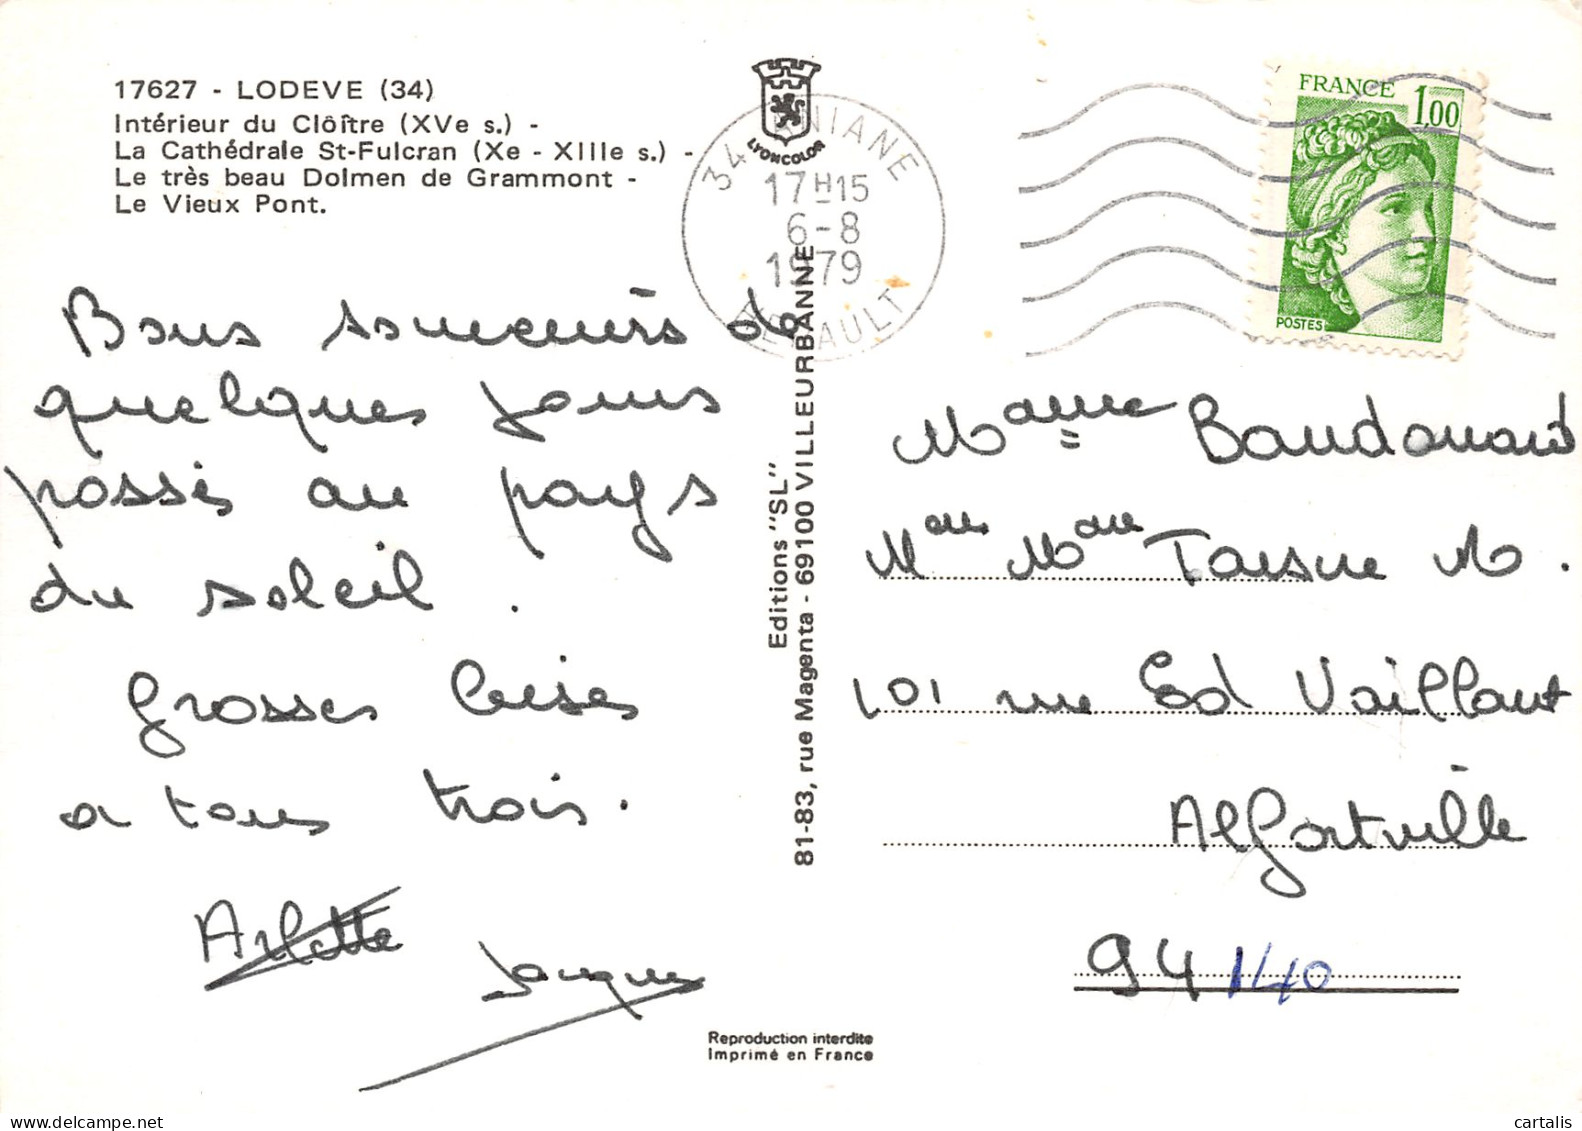 17627 - LODEVE (34)
Intérieur du Clôître (XVe s.) -
La Cathédrale St-Fulcran (Xe - XIIIe s.) -
Le très beau Dolmen de Grammont -
Le Vieux Pont.
Bons souvenirs de
quelques jours
passés au pays
du soleil.
Grosses bises
a tous trois.
Arlette
Jacques
LYONCOLOR
34 ANIANE
17H15
6-8
1979
HERAULT
FRANCE 1,00
POSTES
Editions "SL"
81-83, rue Magenta - 69100 VILLEURBANNE
Baudouard
101 rue Ed Vaillant
Alfortville
94140
Reproduction interdite
Imprimé en France
cartalis